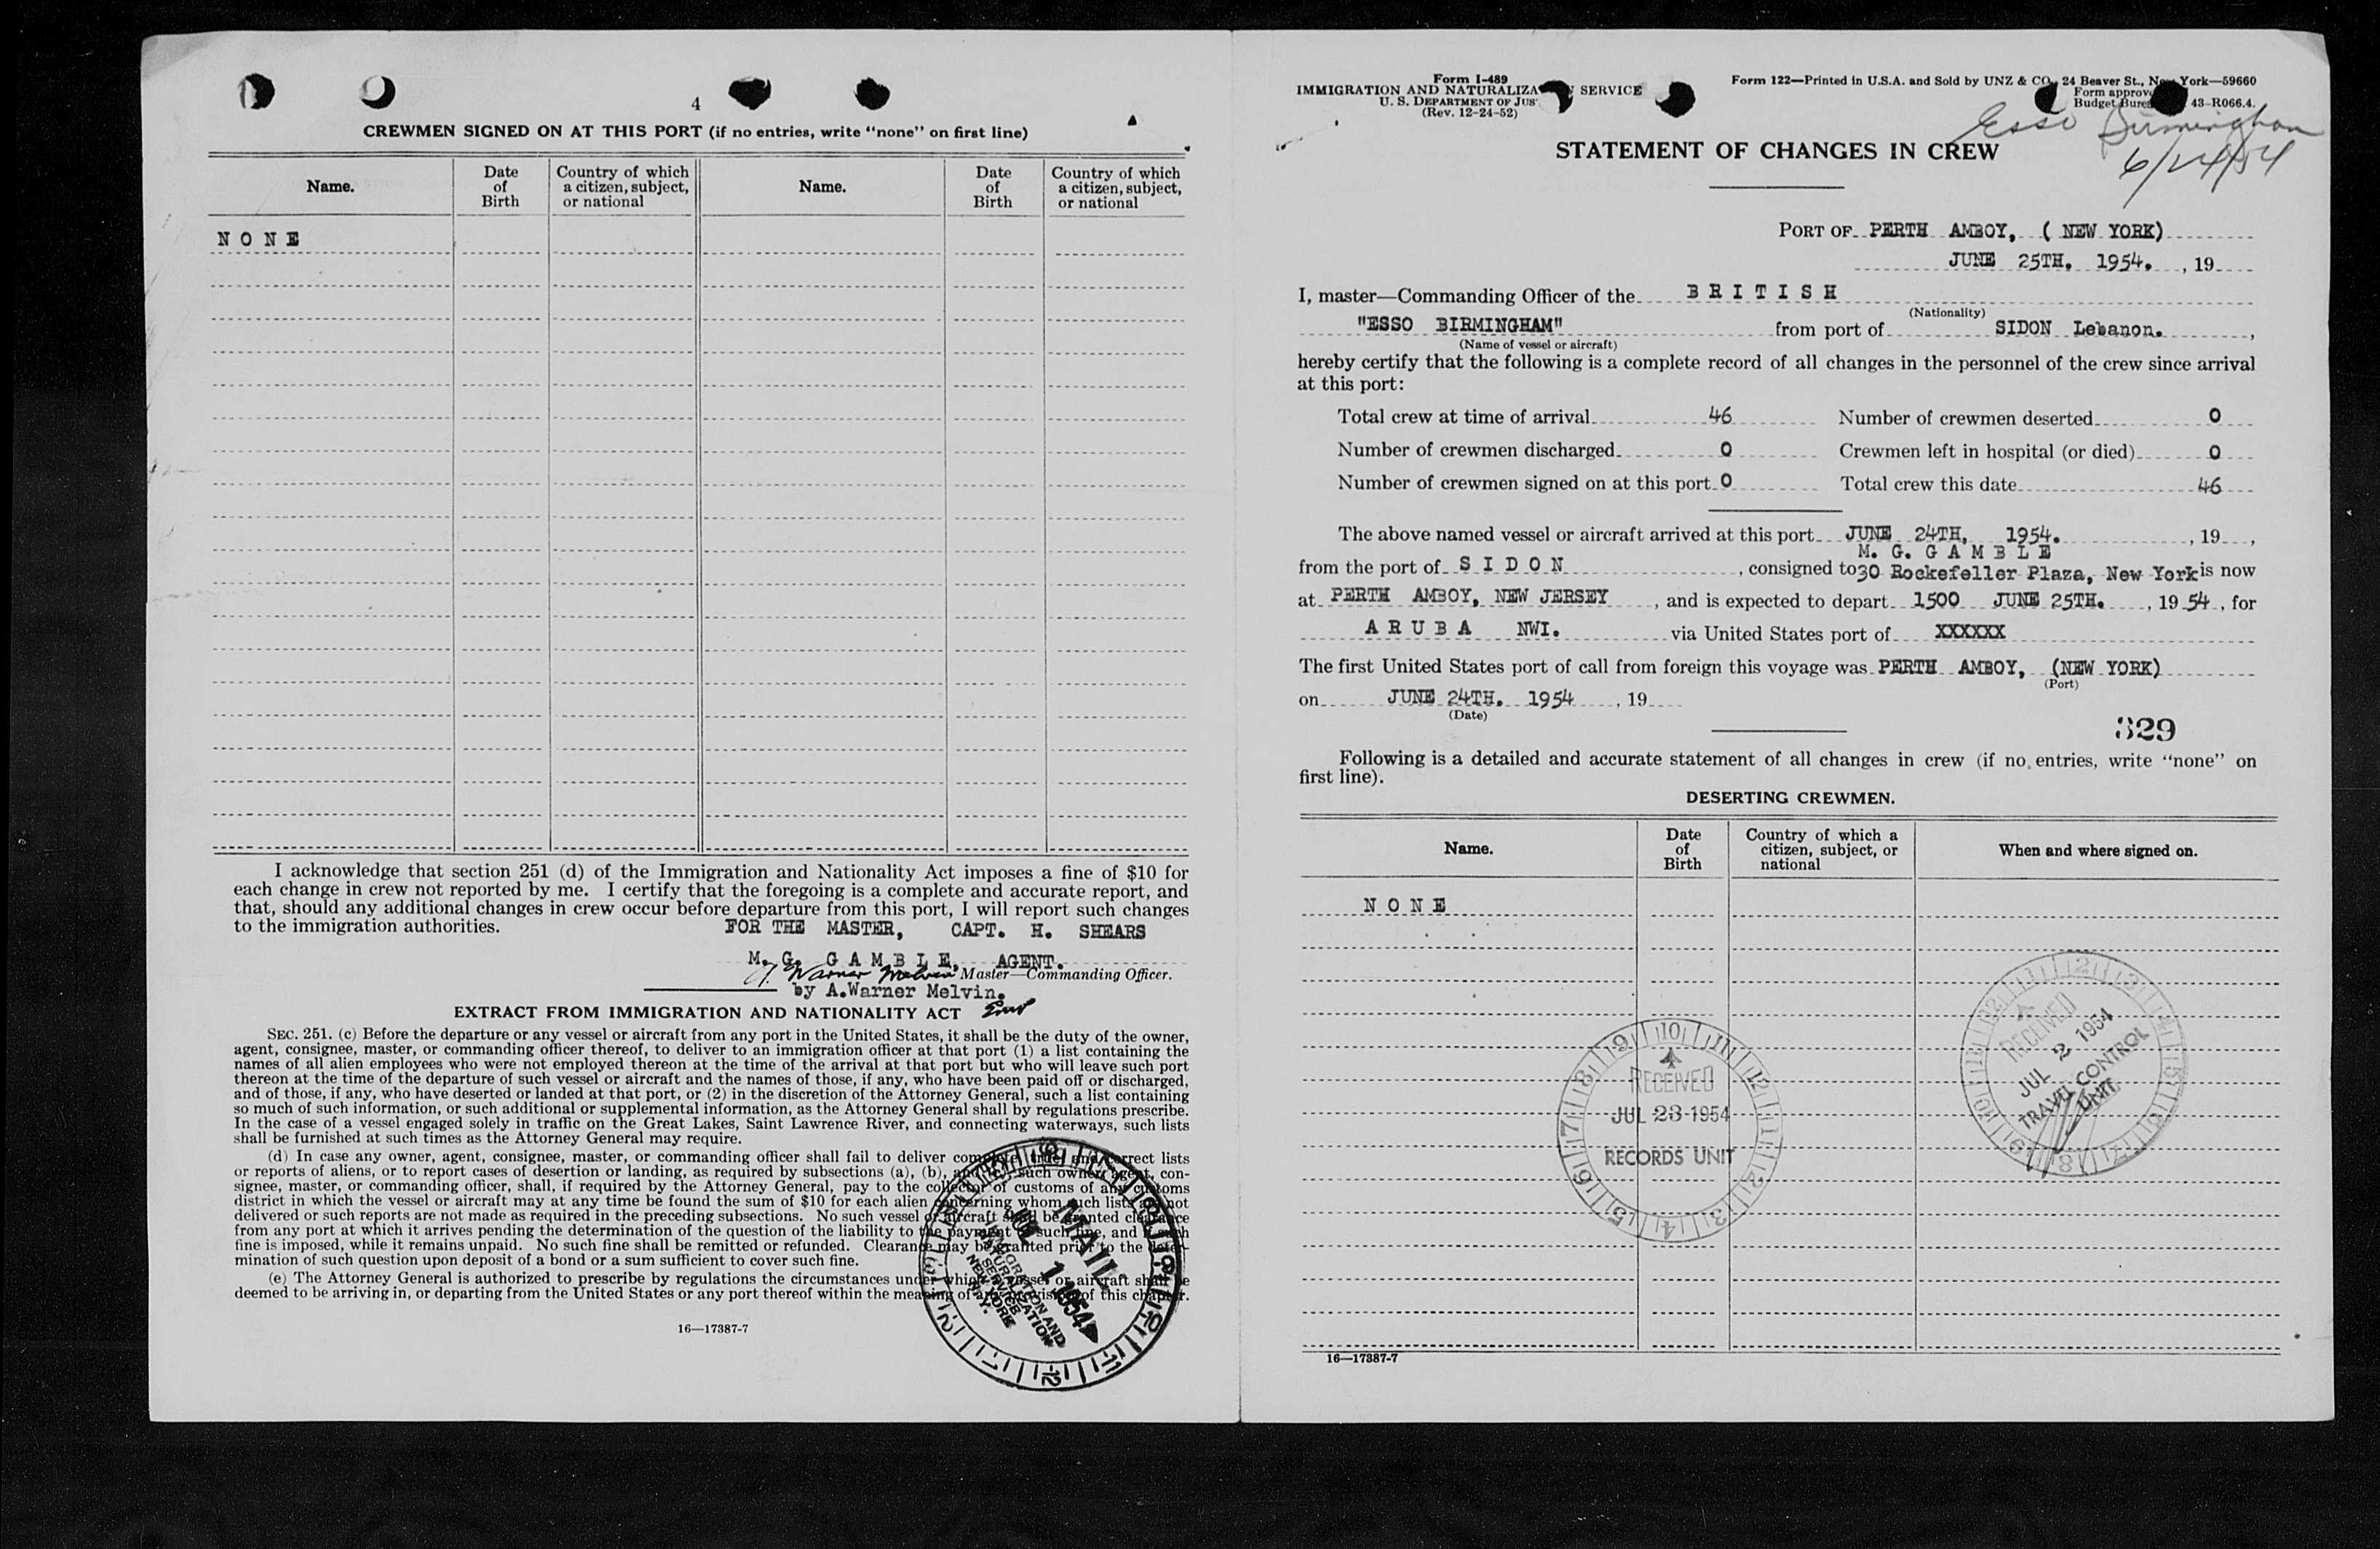 4
CREWMEN SIGNED ON AT THIS PORT (if no entries, write "none" on first line)
Name.
Date of Birth
Country of which a citizen, subject, or national
Name.
Date of Birth
Country of which a citizen, subject, or national
N O N E
I acknowledge that section 251 (d) of the Immigration and Nationality Act imposes a fine of $10 for
each change in crew not reported by me. I certify that the foregoing is a complete and accurate report, and
that, should any additional changes in crew occur before departure from this port, I will report such changes
to the immigration authorities.
FOR THE MASTER, CAPT. H. SHEARS
M. G. G A M B L E, AGENT.
A. Warner Melvin Master—Commanding Officer.
by A.Warner Melvin.
EXTRACT FROM IMMIGRATION AND NATIONALITY ACT
SEC. 251. (c) Before the departure or any vessel or aircraft from any port in the United States, it shall be the duty of the owner,
agent, consignee, master, or commanding officer thereof, to deliver to an immigration officer at that port (1) a list containing the
names of all alien employees who were not employed thereon at the time of the arrival at that port but who will leave such port
thereon at the time of the departure of such vessel or aircraft and the names of those, if any, who have been paid off or discharged,
and of those, if any, who have deserted or landed at that port, or (2) in the discretion of the Attorney General, such a list containing
so much of such information, or such additional or supplemental information, as the Attorney General shall by regulations prescribe.
In the case of a vessel engaged solely in traffic on the Great Lakes, Saint Lawrence River, and connecting waterways, such lists
shall be furnished at such times as the Attorney General may require.
(d) In case any owner, agent, consignee, master, or commanding officer shall fail to deliver complete, true, and correct lists
or reports of aliens, or to report cases of desertion or landing, as required by subsections (a), (b), such owner, agent, con-
signee, master, or commanding officer, shall, if required by the Attorney General, pay to the collector of customs of any customs
district in which the vessel or aircraft may at any time be found the sum of $10 for each alien concerning whom such lists are not
delivered or such reports are not made as required in the preceding subsections. No such vessel or aircraft shall be granted clearance
from any port at which it arrives pending the determination of the question of the liability to the payment of such fine, and if such
fine is imposed, while it remains unpaid. No such fine shall be remitted or refunded. Clearance may be granted prior to the deter-
mination of such question upon deposit of a bond or a sum sufficient to cover such fine.
(e) The Attorney General is authorized to prescribe by regulations the circumstances under which a vessel or aircraft shall be
deemed to be arriving in, or departing from the United States or any port thereof within the meaning of any provision of this chapter.
16—17387-7
MAIL
JUL 1 1954
IMMIGRATION AND
NATURALIZATION
SERVICE
NEW YORK
N.Y.
Form I-489
IMMIGRATION AND NATURALIZA SERVICE
U. S. DEPARTMENT OF JUS
(Rev. 12-24-52)
Form 122—Printed in U.S.A. and Sold by UNZ & CO., 24 Beaver St., New York—59660
Form approve
Budget Bure 43-R066.4.
Esso Birmingham
6/24/54
STATEMENT OF CHANGES IN CREW
PORT OF PERTH AMBOY, ( NEW YORK)
JUNE 25TH. 1954. , 19
I, master—Commanding Officer of the B R I T I S H
(Nationality)
"ESSO BIRMINGHAM" from port of SIDON Lebanon. ,
(Name of vessel or aircraft)
hereby certify that the following is a complete record of all changes in the personnel of the crew since arrival
at this port:
Total crew at time of arrival 46 Number of crewmen deserted 0
Number of crewmen discharged 0 Crewmen left in hospital (or died) 0
Number of crewmen signed on at this port 0 Total crew this date 46
The above named vessel or aircraft arrived at this port JUNE 24TH, 1954. , 19 ,
M. G. G A M B L E
from the port of S I D O N , consigned to 30 Rockefeller Plaza, New York is now
at PERTH AMBOY, NEW JERSEY , and is expected to depart 1500 JUNE 25TH. , 19 54 , for
A R U B A NWI. via United States port of XXXXXX
The first United States port of call from foreign this voyage was PERTH AMBOY, (NEW YORK)
(Port)
on JUNE 24TH. 1954 , 19
(Date)
329
Following is a detailed and accurate statement of all changes in crew (if no entries, write "none" on
first line).
DESERTING CREWMEN.
Name.
Date of Birth
Country of which a citizen, subject, or national
When and where signed on.
N O N E
RECEIVED
JUL 23 1954
RECORDS UNIT
RECEIVED
JUL 2 1954
TRAVEL CONTROL
UNIT
16—17387-7